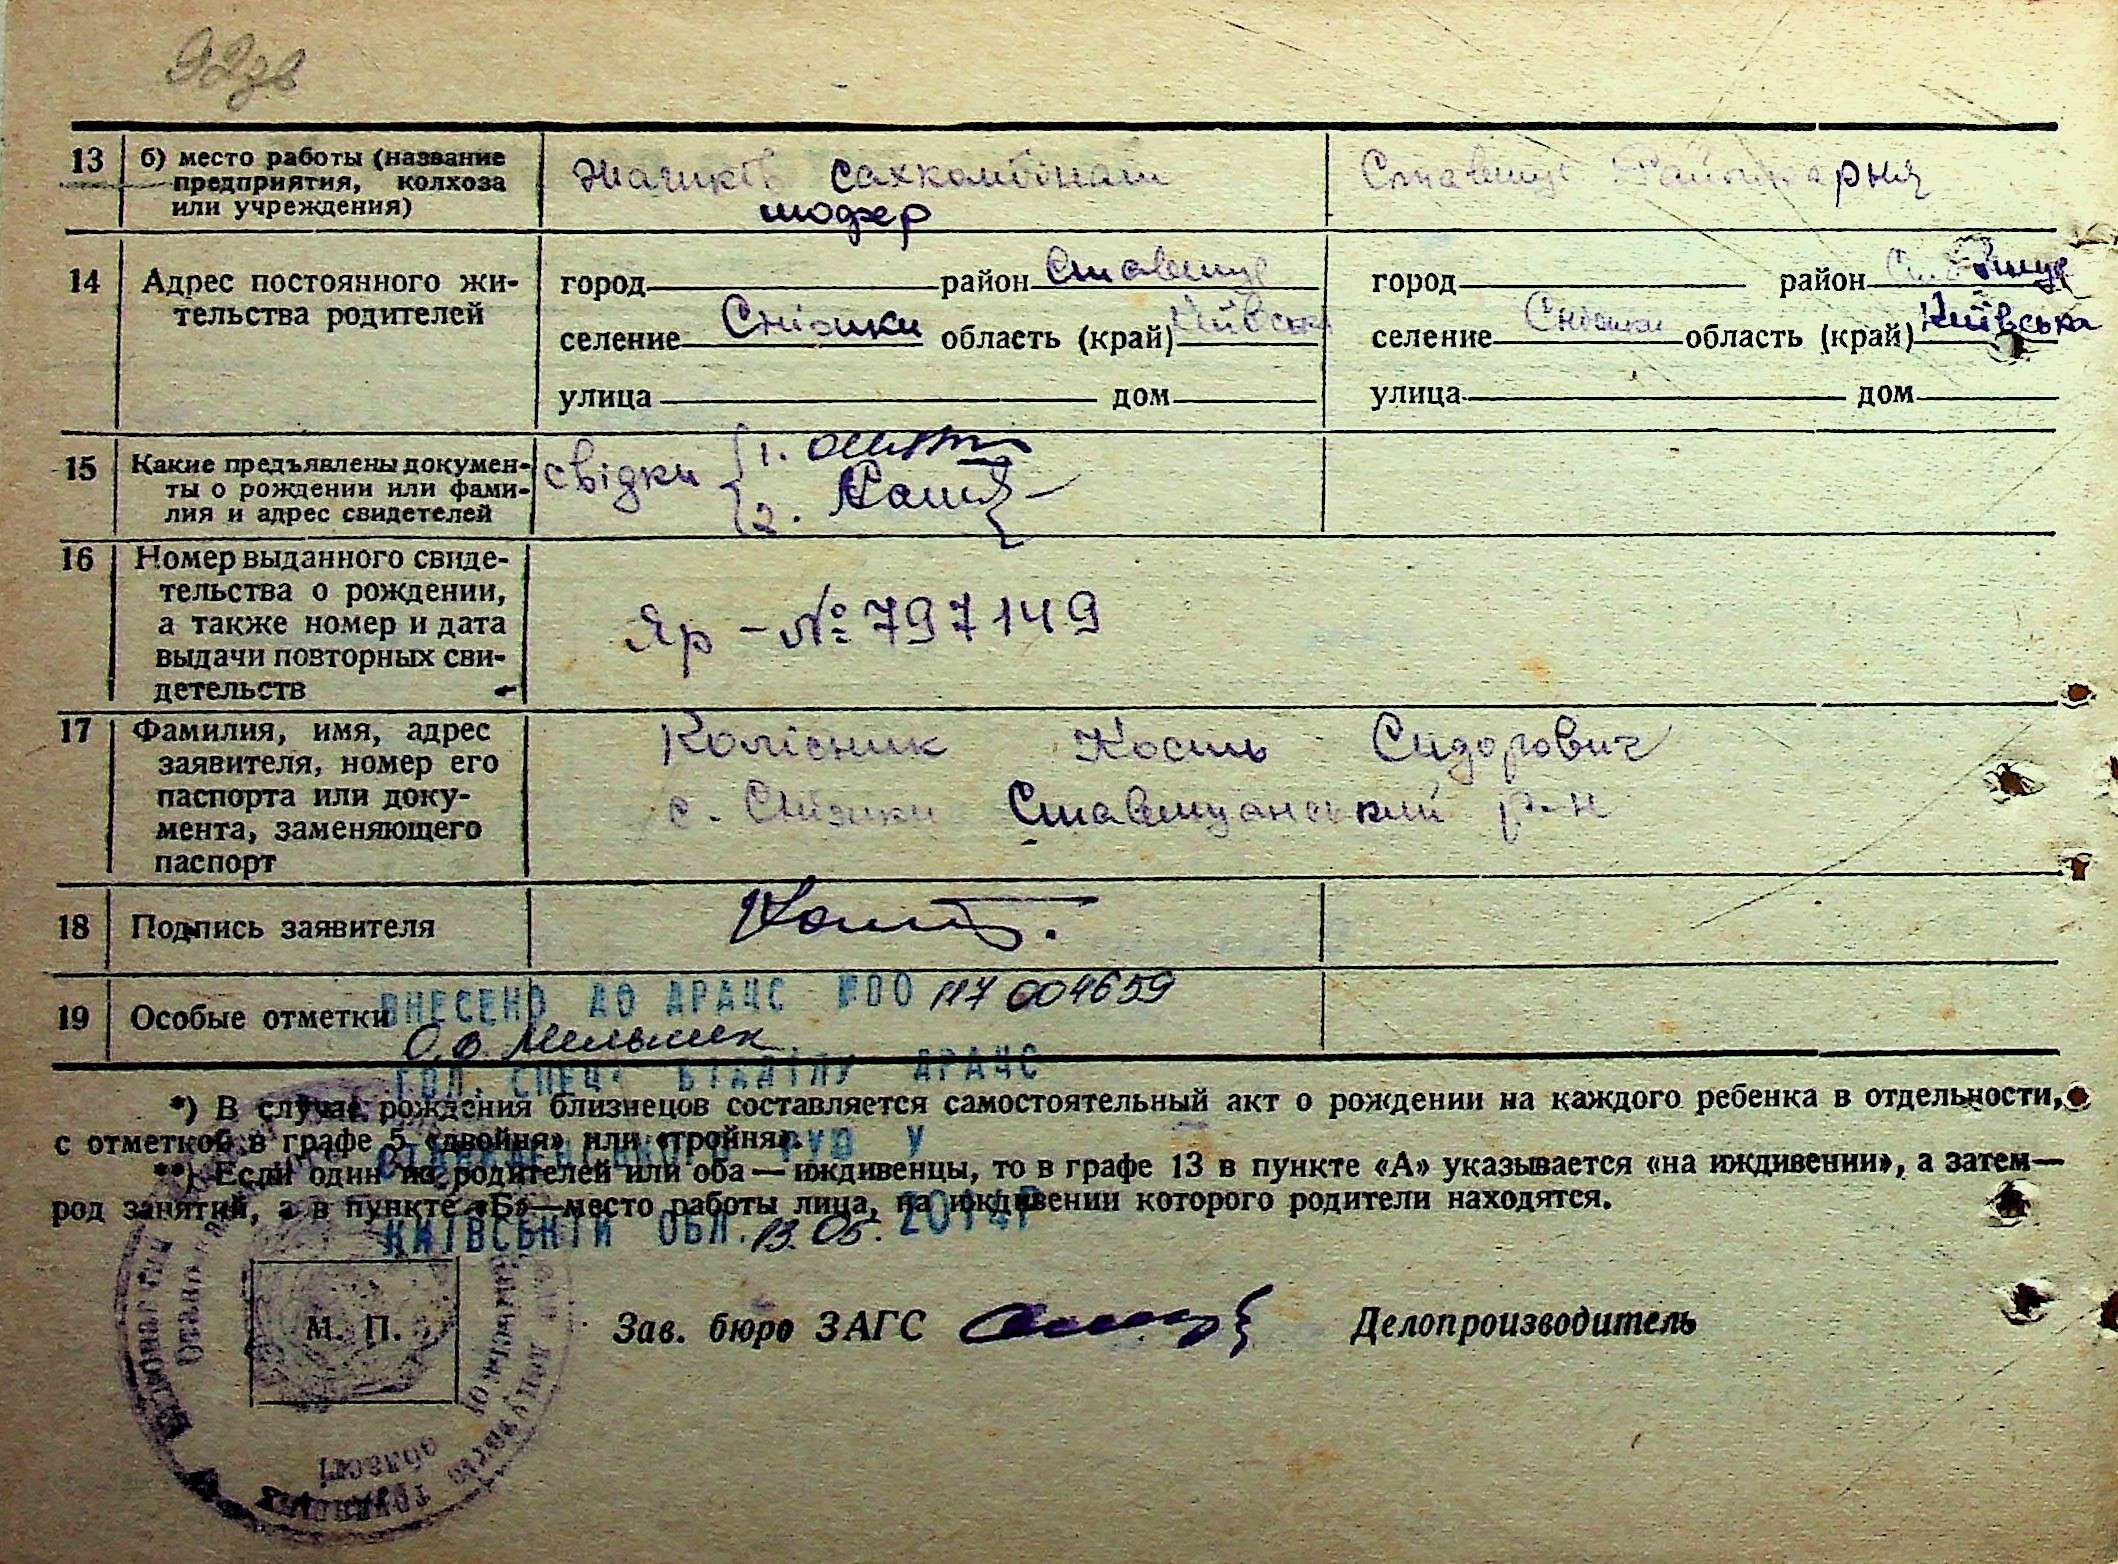 92зв
13 б) место работы (название
предприятия, колхоза
или учреждения)
Жашків сахкомбінат
шофер
Ставище Райлікарня
14 Адрес постоянного жи-
тельства родителей
город район Ставище
селение Сніжки область (край) Київська
улица дом
город район Ставище
селение Сніжки область (край) Київська
улица дом
15 Какие предъявлены докумен-
ты о рождении или фами-
лия и адрес свидетелей
свідки 1.
2.
16 Номер выданного свиде-
тельства о рождении,
а также номер и дата
выдачи повторных сви-
детельств
Яр - № 797149
17 Фамилия, имя, адрес
заявителя, номер его
паспорта или доку-
мента, заменяющего
паспорт
Колісник Кость Сидорович
с. Сніжки Ставищанський р-н
18 Подпись заявителя
19 Особые отметки
ВНЕСЕНО ДО ДРАЦС №00 117 004659
О.В. Мельник
ГОЛ. СПЕЦ. ВІДДІЛУ ДРАЦС
*) В случае рождения близнецов составляется самостоятельный акт о рождении на каждого ребенка в отдельности,
с отметкой в графе 5 «двойня» или «тройня».
РУЮ У
**) Если один из родителей или оба — иждивенцы, то в графе 13 в пункте «А» указывается «на иждивении», а затем—
род занятий, а в пункте «Б»—место работы лица, на иждивении которого родители находятся.
КИЇВСЬКІЙ ОБЛ. 13.05. 2014Р
М. П.
Зав. бюро ЗАГС
Делопроизводитель
області